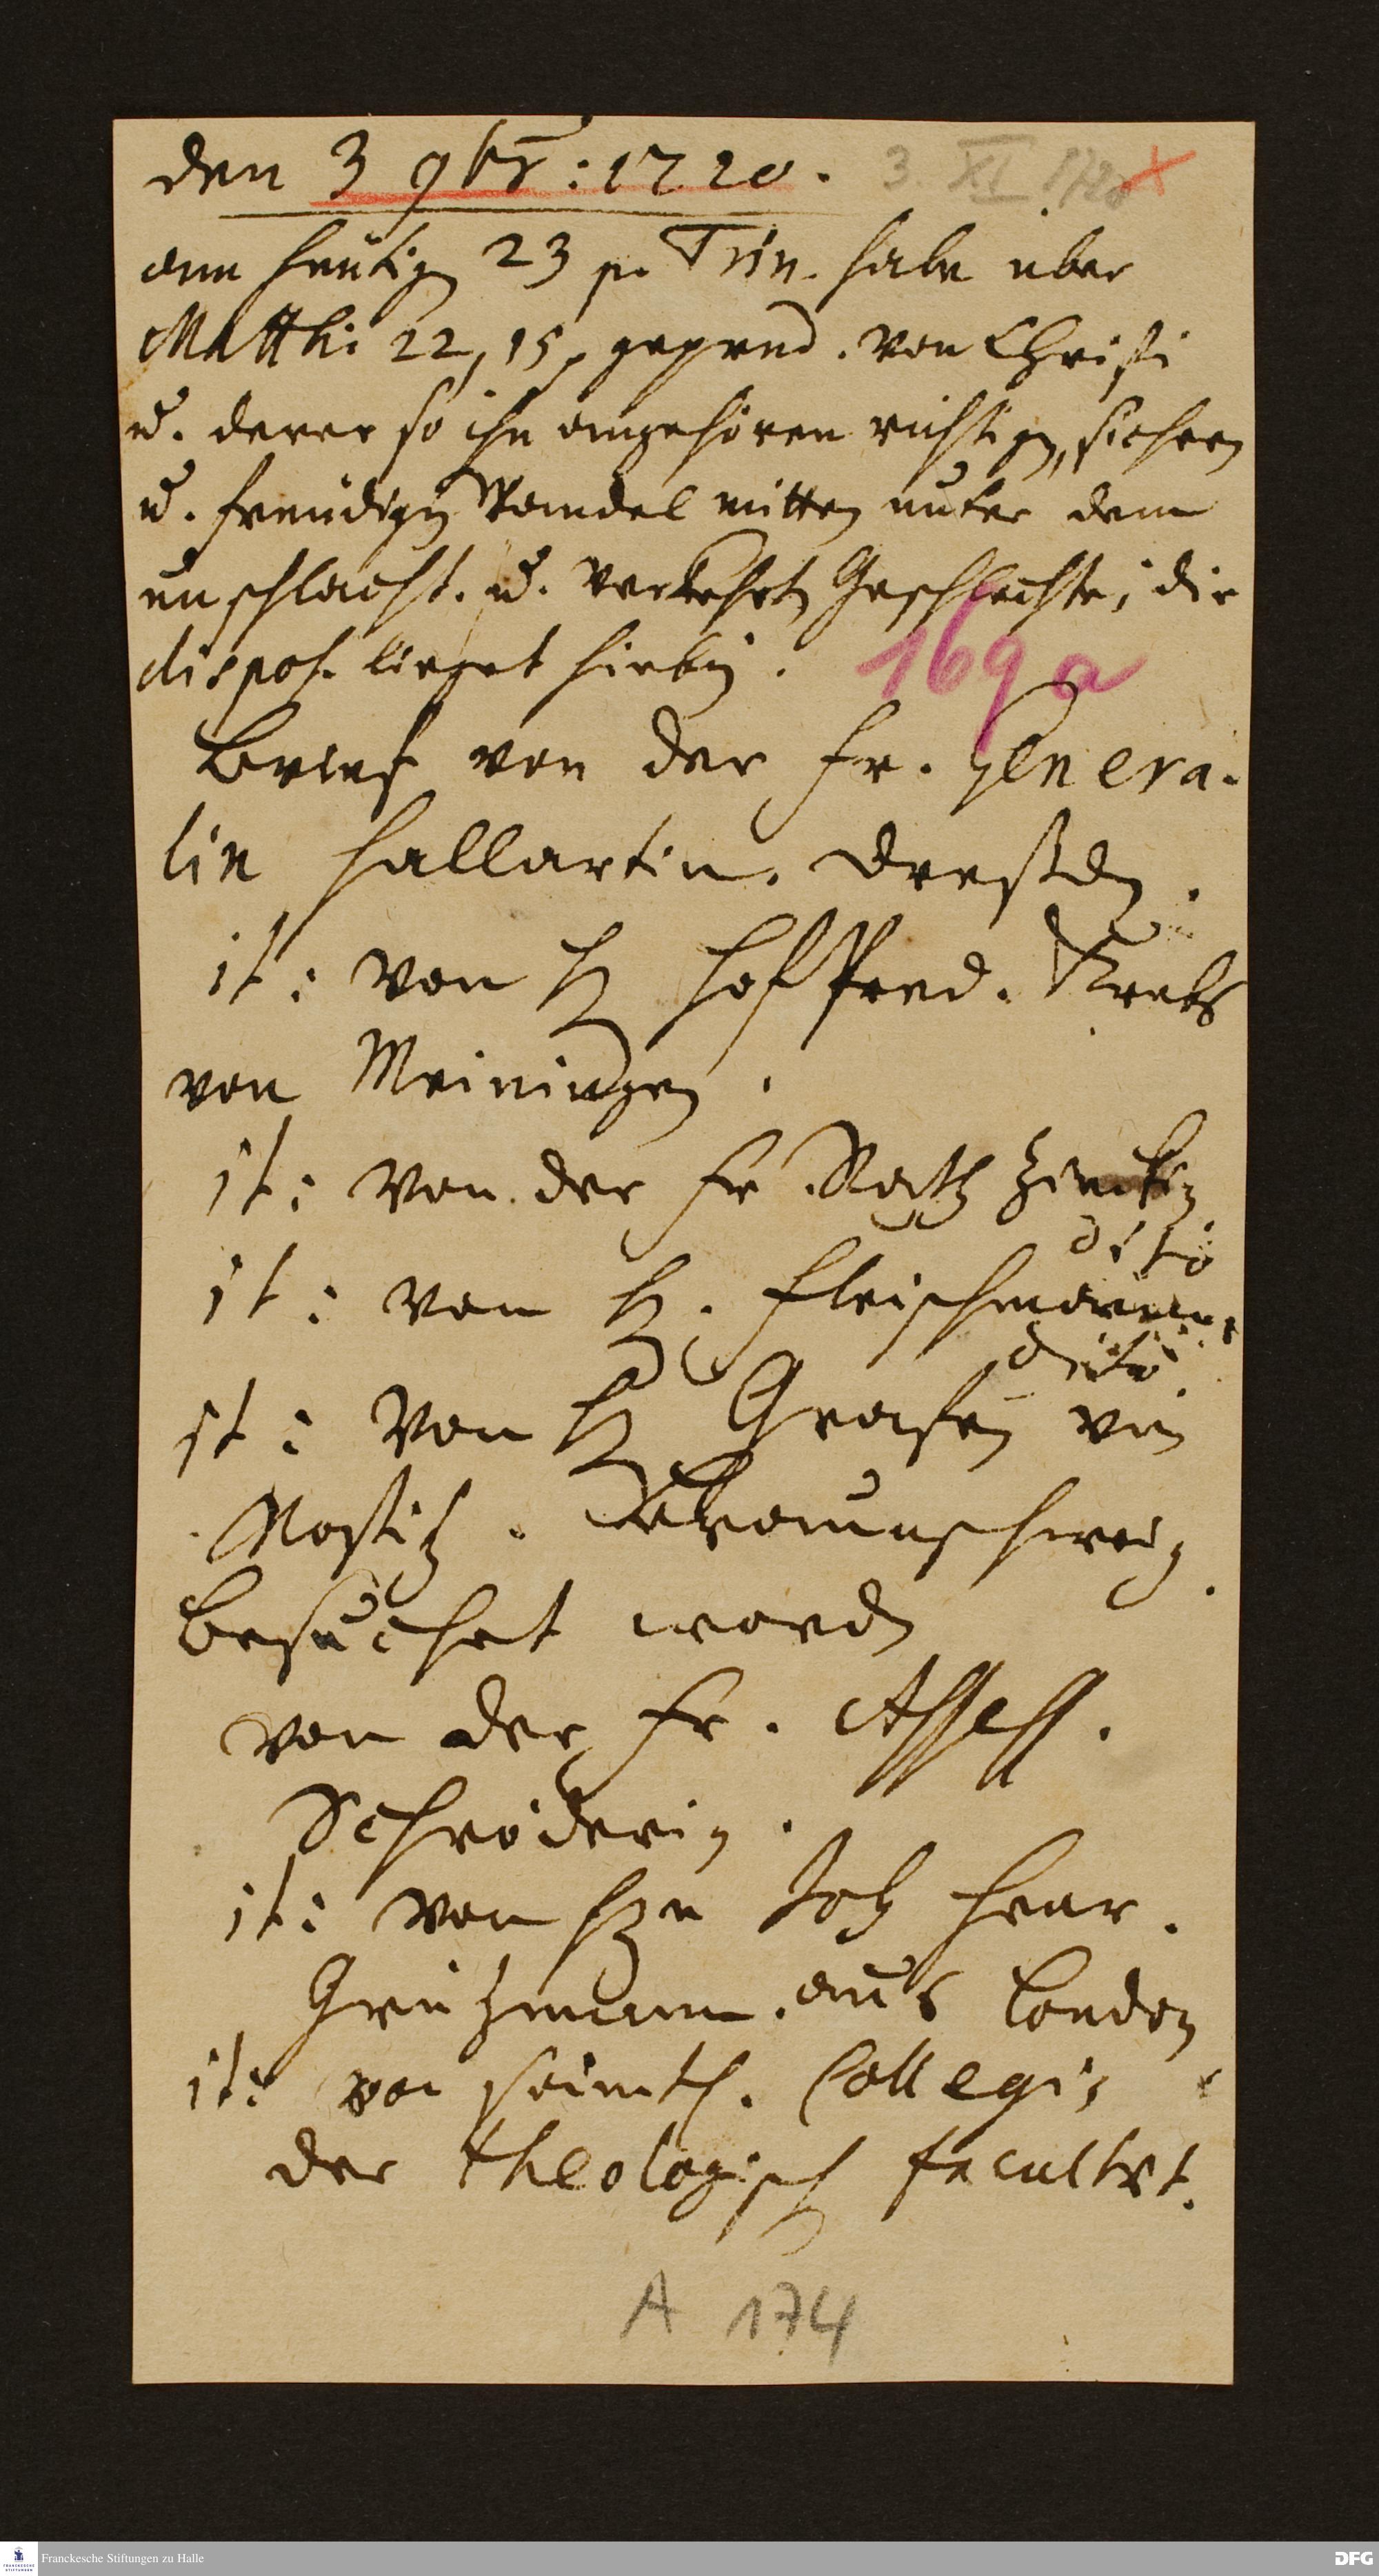 den 3 9br: 1720. 3 XI 1720
am heutigen 23 p. Trin. habe über
Matth: 22, 15, gepred. von Christi
u. derer so ihn angehören richtigen, sichern
u. freudigen Wandel mitten unter dem
unschlacht. u. verkehrten Geschlechte; die
dispos. lieget hierbey.
169 a
Brief von der Fr. Genera-
lin Hallartin. Dreßden.
it: von H Hoffpred. Krebs
von Meiningen.
it: von der Fr. Rath
dito
it: von H. Fleischmann.
dito
it: von H Grafen von
Nostitz. Braunschweig.
Besuchet worden
von der Fr. Assess.
Schröderin.
it: von Hn Joh
Grützmann. aus London
it: von sämtl. Collegis
der theologisch facultet.
A 174
Franckesche Stiftungen zu Halle
DFG